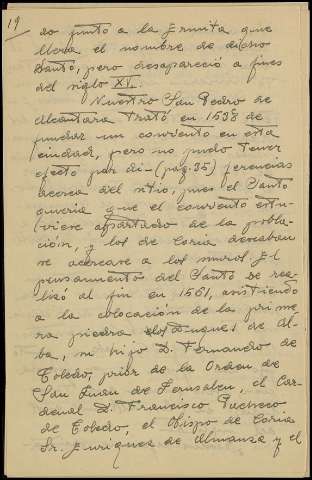 19
do junto a la Ermita que
lleva el nombre de dicho
Santo, pero desapareció a fines
del siglo XV.
Nuestro San Pedro de
Alcantara trató en 1538 de
fundar un convento en esta
ciudad, pero no pudo tener
efecto por di-(pag. 35) ferencias
acerca del sitio, pues el Santo
queria que el convento estu-
viese apartado de la pobla-
ción, y los de Coria deseaban
se acercase a los muros. El
pensamiento del Santo se rea-
lizó al fin en 1561, asistiendo
a la colocación de la prime-
ra piedra los Duques de Al-
ba, su hijo D. Fernando de
Toledo, prior de la Orden de
San Juan de Jerusalen, el Car-
denal D. Francisco Pacheco
de Toledo, el Obispo de Coria
Sr. Enriquez de Almansa y el